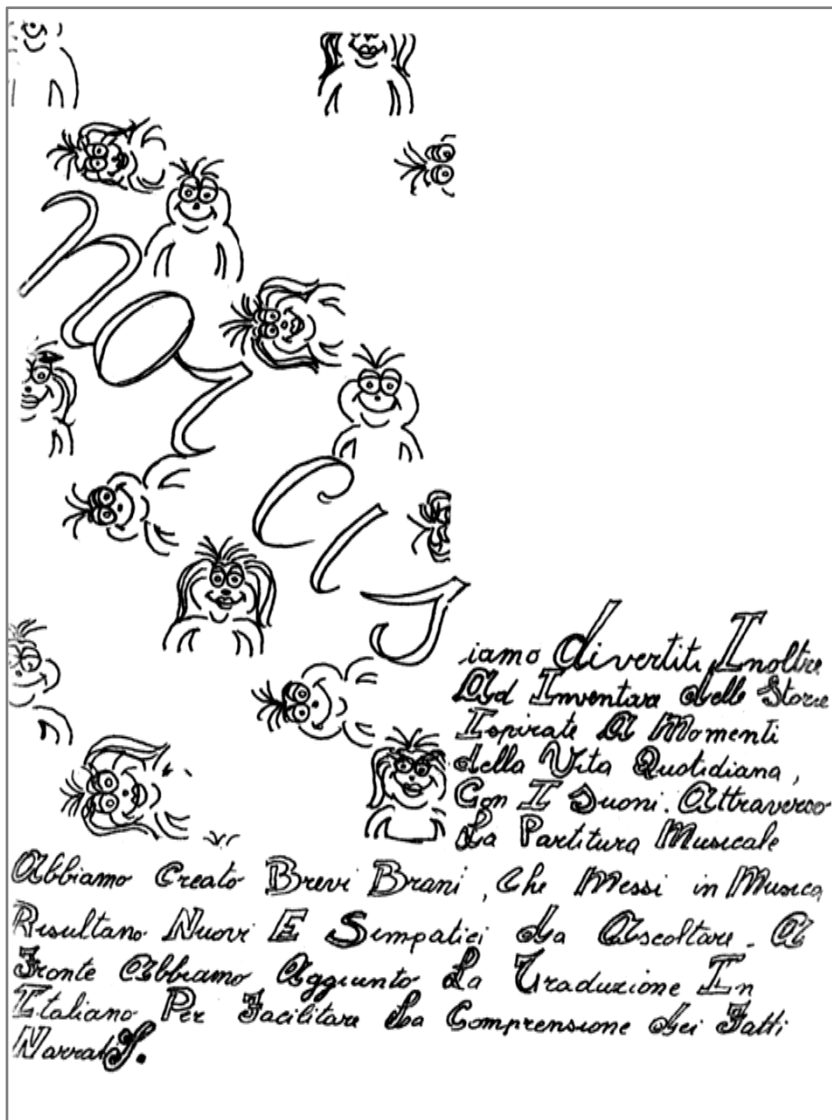 Noi
Ci S
iamo divertiti, Inoltre
Ad Inventare delle Storie
Ispirate A Momenti
della Vita Quotidiana,
Con I Suoni. Attraverso
La Partitura Musicale
Abbiamo Creato Brevi Brani, Che Messi in Musica
Risultano Nuovi E Simpatici da Ascoltare. A
Fronte Abbiamo Aggiunto La Traduzione In
Italiano Per Facilitare La Comprensione dei Fatti
Narrati.